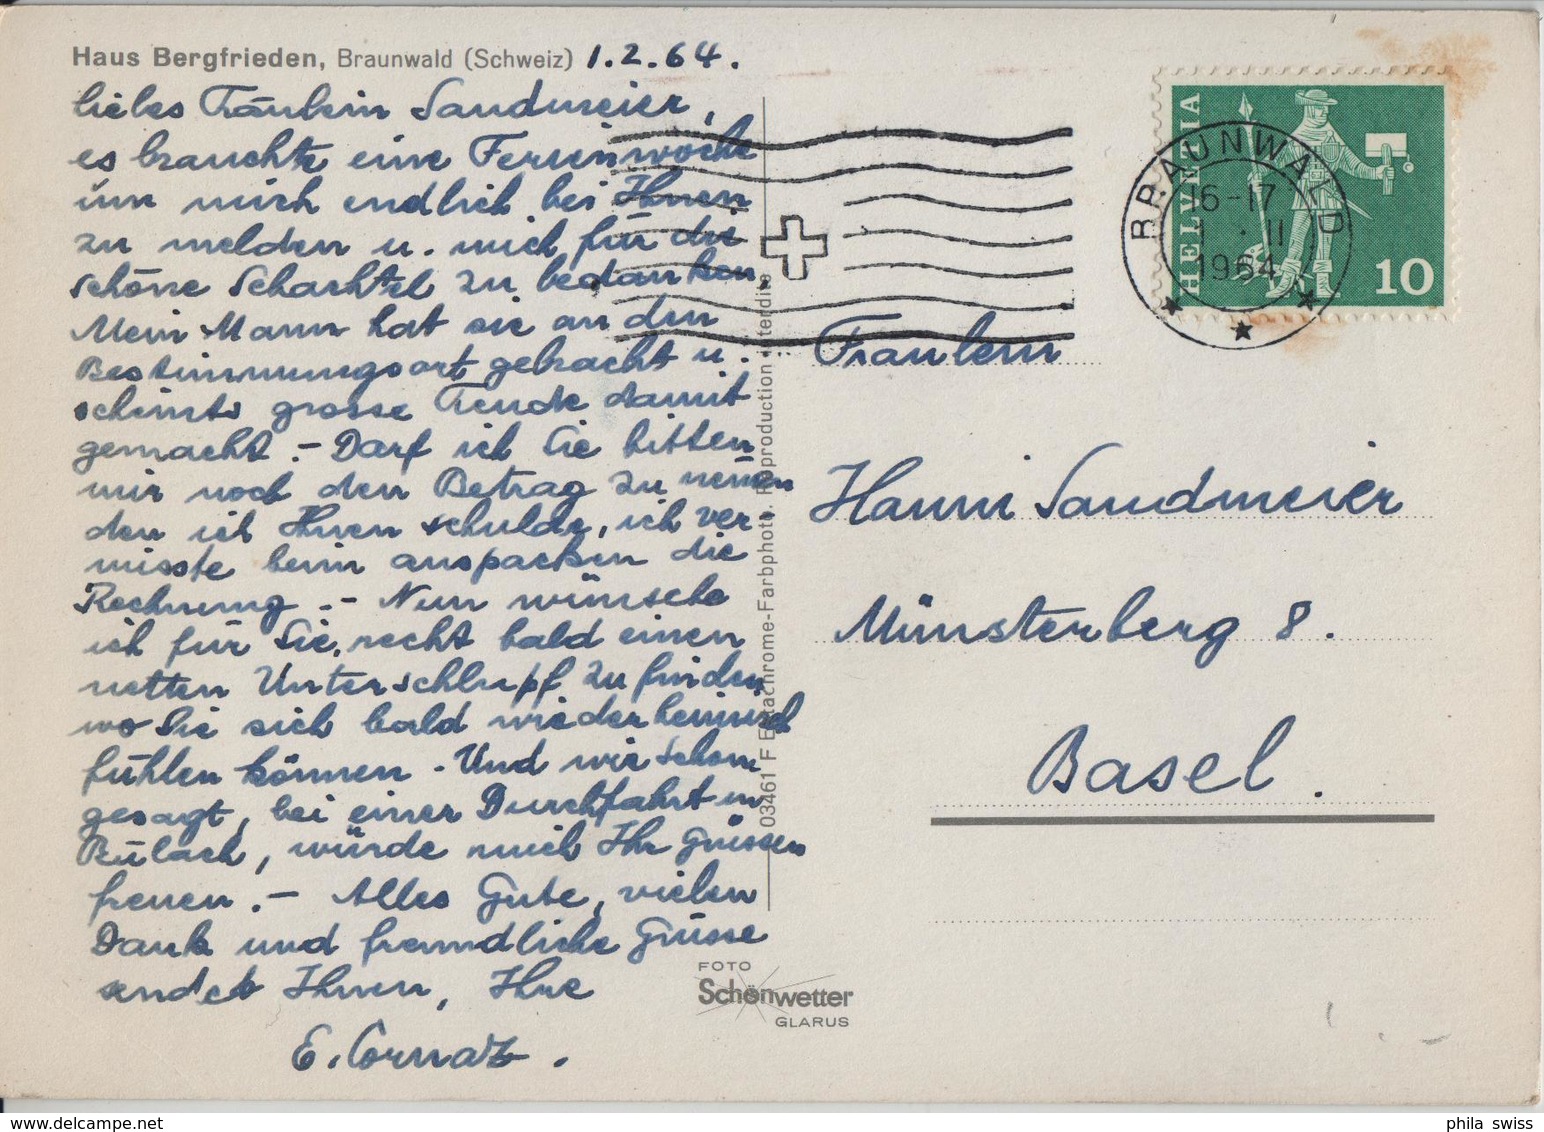 Haus Bergfrieden, Braunwald (Schweiz) 1.2.64.
liebes Fräulein Sandmeier,
es brauchte eine Ferienwoche
um mich endlich bei Ihnen
zu melden u. mich für die
schöne Schachtel zu bedanken,
Mein Mann hat sie an den
Bestimmungsort gebracht u.
scheints grosse Freude damit
gemacht. – Darf ich Sie bitten
mir noch den Betrag zu nennen
den ich Ihnen schulde, ich ver-
misste beim auspacken die
Rechnung. – Nun wünsche
ich für Sie, recht bald einen
netten Unterschlupf zu finden,
wo Sie sich bald wieder heimisch
fühlen können. Und wie schon
gesagt, bei einer Durchfahrt in
Bülach, würde mich Ihr Grüssen
freuen. – Alles Gute, vielen
Dank und freundliche Grüsse
sendet Ihnen, Ihre
E. Cornaz.
03461 F Ektachrome-Farbphoto. Reproduction interdite
FOTO
Schönwetter
GLARUS
HELVETIA
10
BRAUNWALD
16-17
1 . II
1964
Fraulein
Hanni Sandmeier
Münsterberg 8.
Basel.
phila swiss